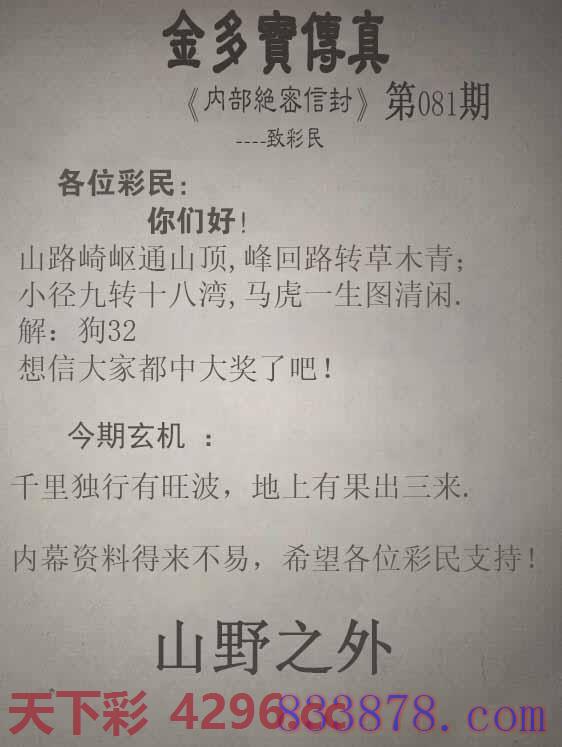 金多寶傳真
《内部絕密信封》第081期
----致彩民
各位彩民:
你们好!
山路崎岖通山顶,峰回路转草木青;
小径九转十八湾,马虎一生图清闲.
解：狗32
想信大家都中大奖了吧!
今期玄机 ：
千里独行有旺波，地上有果出三来.
内幕资料得来不易，希望各位彩民支持!
山野之外
天下彩 4296.cc
883878.com